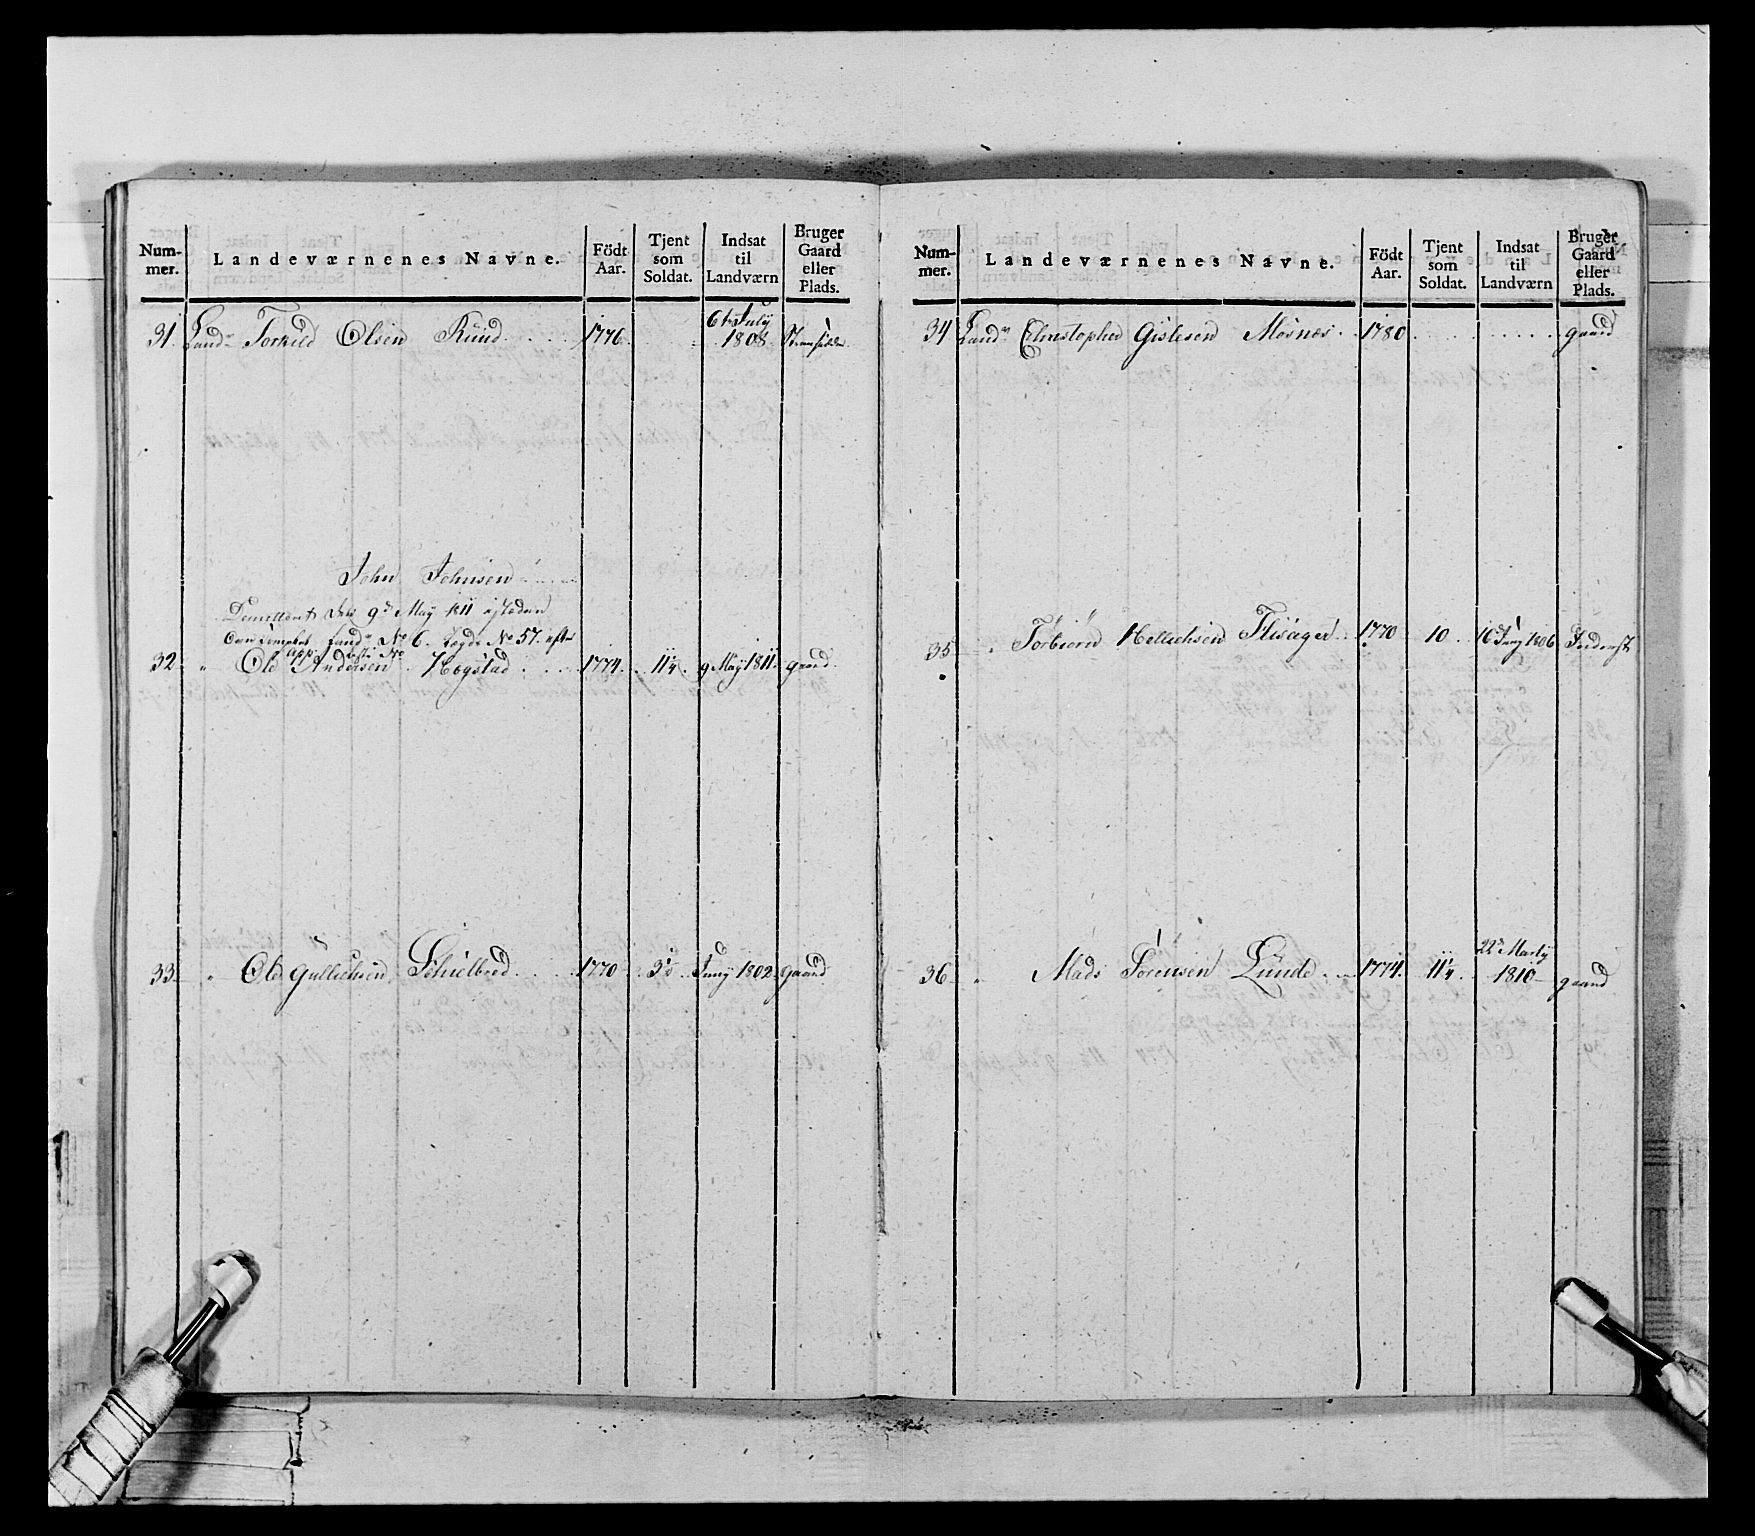 Num-
mer.
Landeværnenes Navne.
Födt
Aar.
Tjent
som
Soldat.
Indsat
til
Landværn
Bruger
Gaard
eller
Plads.
31. Landv Torkild Olsen Ruud 1776. 6te July 1808
John Johnsen
Demittent den 9d May 1811
Landv No 6. Legds No 57. efter
app.
32 " Ole Andersen Hogstad 1774. 11¼ 9 May 1811. gaard
33 " Ole Gullichsen Schielbred 1770 Juny 1802 gaard
Num-
mer.
Landeværnenes Navne.
Födt
Aar.
Tjent
som
Soldat.
Indsat
til
Landværn
Bruger
Gaard
eller
Plads.
34 Landv Christopher Gislesen Mosnæs 1780 gaard
35 " Torbiørn Hellichsen Flisager 1770 10 10d Juny 1806 Inderst
36 " Mads Sørensen Lunde 1774. 11¼ 22d Marty 1810 gaard